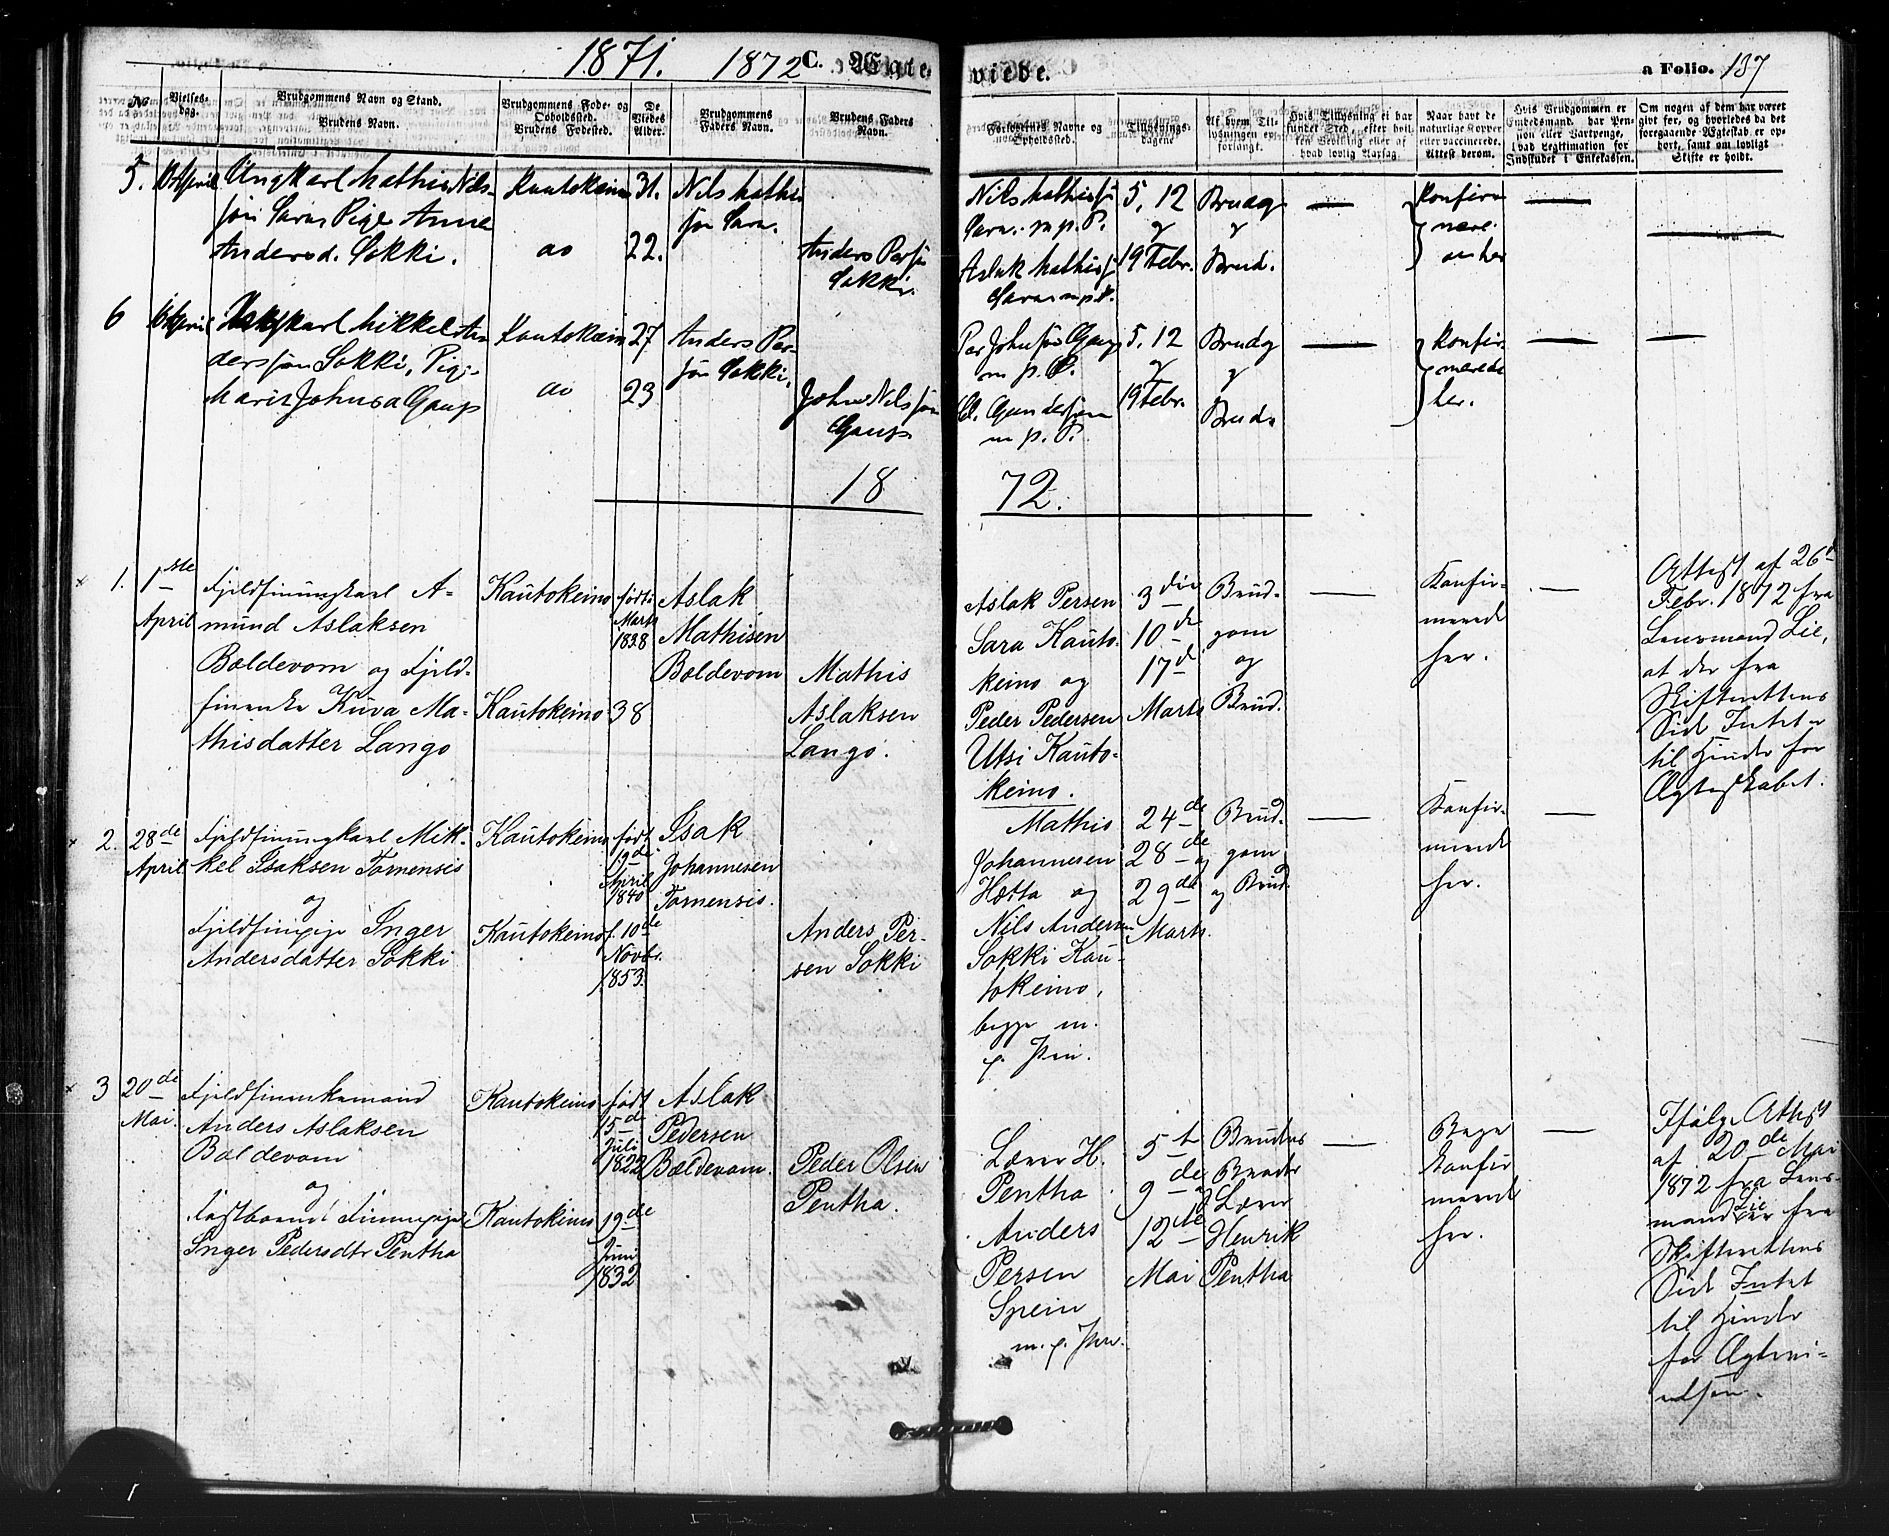 1871. 1872 C. Ægte
viede.
a Folio. 137
No
Vielses-
dag.
Brudgommens Navn og Stand.
Brudens Navn.
Brudgommens Føde- og
Opholdssted.
Brudens Fødested.
De
Viedes
Alder.
Brudgommens
Faders Navn.
Brudens Faders
Navn.
Forlovernes Navne og
Opholdssted.
Tillysnings-
dagene
Af hvem Til-
lysningen er
forlangt.
Hvis Tillysning ei har
fundet Sted, efter hvil-
ken Bevilling eller af
hvad lovlig Aarsag.
Naar havt de
naturlige Kopper
eller vaccinerede.
Attest derom.
Hvis Brudgommen er
Embedsmand, har Pen-
sion eller Vartpenge,
hvad Legitimation for
Indskudet i Enkekassen.
Om nogen af dem har været
gift før, og hvorledes da det
foregaaende Ægteskab er op-
hørt, samt om lovligt
Skifte er holdt.
5. April Ungkarl Mathis Nils-
søn Sara, Pige Anne
Andersd. Sokki.
Kautokeino 31.
do 22.
Nils Mathis
søn Sara.
Anders Persøn
Sokki.
Nils Mathissøn
Sara. m. p. P.
Aslak Mathissøn
Sara m. p. P.
5, 12
&
19 Febr.
Brudg
&
Brud.
Konfir
mere
de her
6 April Ungkarl Mikkel An
derssøn Sokki, Pige
Marit Johnsd. Gaup
Kautokein 27
do 23
Anders Per-
søn Sokki.
John Nilssøn
Gaup
Per Johnsøn Gaup
m. p. P.
O. Gundersen
m. p. P.
5, 12
&
19 Febr.
Brudg
&
Brud
Konfir
merede
her.
18 72.
1. 1ste
April
Fjeldfinungkarl A-
mund Aslaksen
Boldevom og Fjeld-
finenke Kuva Ma-
thisdatter Lango
Kautokeino
Kautokeino
født
Marts
1838
38
Aslak
Mathisen
Boldevom
Mathis
Aslaksen
Lango.
Aslak Persen
Sara Kauto-
keino og
Peder Pedersen
Utsi Kauto-
keino.
3die
10de
17de
Marts
Brud-
gom
og
Brud.
Konfir-
merede
her.
Attest af 26de
Febr. 1872 fra
Lensmand Lie,
at der fra
Skifterettens
Side Intet er
til Hinder for
Ægteskabet.
2. 28de
April
Fjeldfinungkarl Mik-
kel Isaksen Tornensis
og
Fjeldfinpige Inger
Andersdatter Sokki
Kautokeino
Kautokeino
født
19de
April
1840
f. 10de
Novbr.
1853.
Isak
Johannesen
Tornensis.
Anders Per-
sen Sokki
Mathis
Johannesen
Hætta og
Nils Andersen
Sokki Kau-
tokeino,
begge m.
p. Pen.
24de
28de og
29de
Marts.
Brud-
gom
og Brud.
Konfir-
merede
her.
3 20de
Mai.
Fjeldfinenkemand
Anders Aslaksen
Boldevom
og
Fastboend Finnepige
Inger Pedersdtr Pentha
Kautokeino
Kautokeino
født
15de
Juli
1822
19de
Juni
1832
Aslak
Pedersen
Boldevom.
Peder Olsen
Pentha.
Lærer H.
Pentha
Anders
Persen
Spein
m. p. Pen.
5te
9de og
12te
Mai
Brudens
Broder
Lærer
Henrik
Pentha
Bege
Konfir
merede
her.
Ifølge Attest
af 20de Mai
1872 fra Lens-
mand Lie er fra
Skifterettens
Side Intet
til Hinder
for Ægtevi-
elsen.